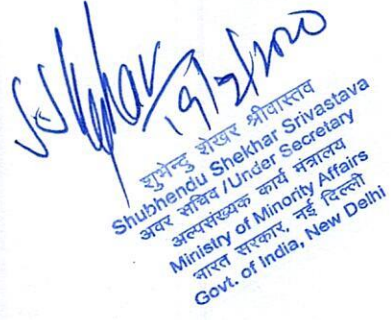 19/2/2020
शुभेन्दु शेखर श्रीवास्तव
Shubhendu Shekhar Srivastava
अवर सचिव /Under Secretary
अल्पसंख्यक कार्य मंत्रालय
Ministry of Minority Affairs
भारत सरकार, नई दिल्ली
Govt. of India, New Delhi